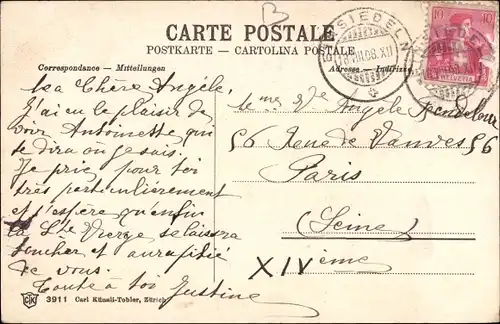 CARTE POSTALE
POSTKARTE - CARTOLINA POSTALE
Correspondance - Mitteilungen
Adresse - Indirizzo
B
EINSIEDELN
10 10
HELVETIA
Ma Chère Angèle,
J'ai eu le plaisir de
voir Antoinette qui
te dira où je suis.
Je prie pour toi
très particulièrement
et j'espère qu'enfin
la Ste Vierge se laissera
toucher et aura pitié
de vous.
Toute à toi Justine
Mme Vve Angèle
56 Rue de Vanves 56
Paris
(Seine)
XIVème
CK 3911 Carl Künzli-Tobler, Zürich